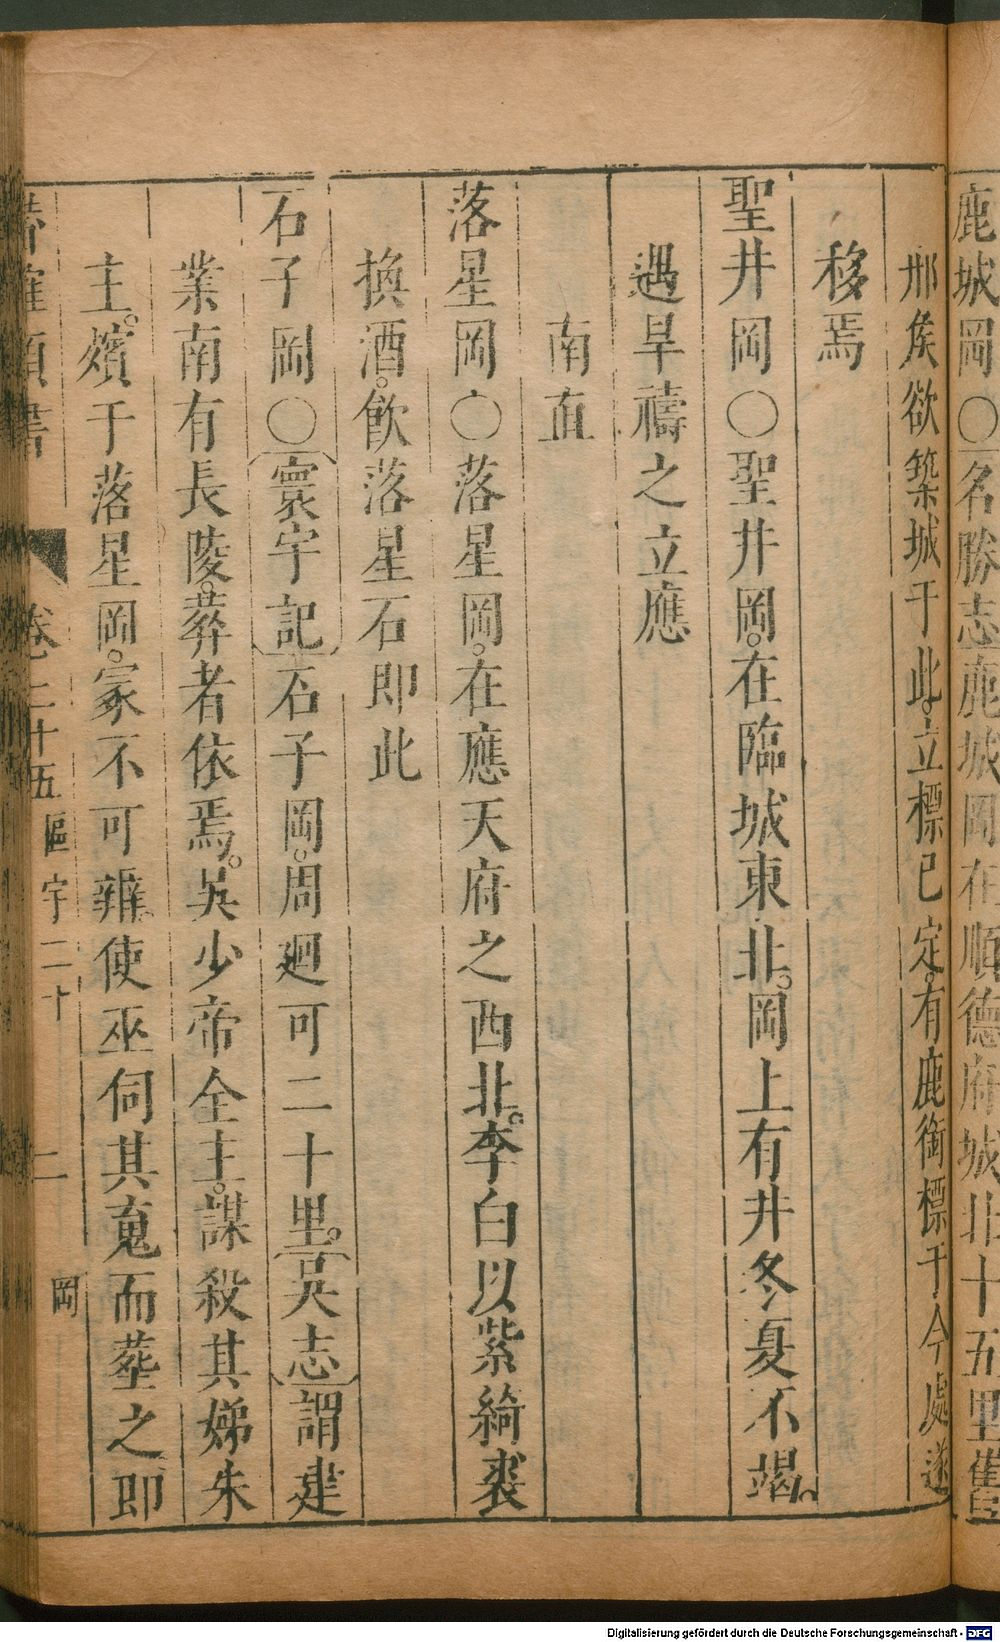 鹿城岡○名勝志鹿城岡在順德府城北十五里舊
邢侯欲築城于此。立標已定。有鹿銜標于今處遂
移焉
聖井岡○聖井岡。在臨城東北。岡上有井冬夏不竭。
遇旱禱之立應
南直
落星岡○落星岡。在應天府之西北。李白以紫綺裘
換酒。飮落星石即此
石子岡○寰宇記石子岡。周廻可二十里。吳志謂建
業南有長陵。葬者依焉。吳少帝全主。謀殺其娣朱
主。殯于落星岡。冢不可辨。使巫伺其䰟而塟之即
卷二十五 區宇二十 二 岡
Digitalisierung gefördert durch die Deutsche Forschungsgemeinschaft - DFG